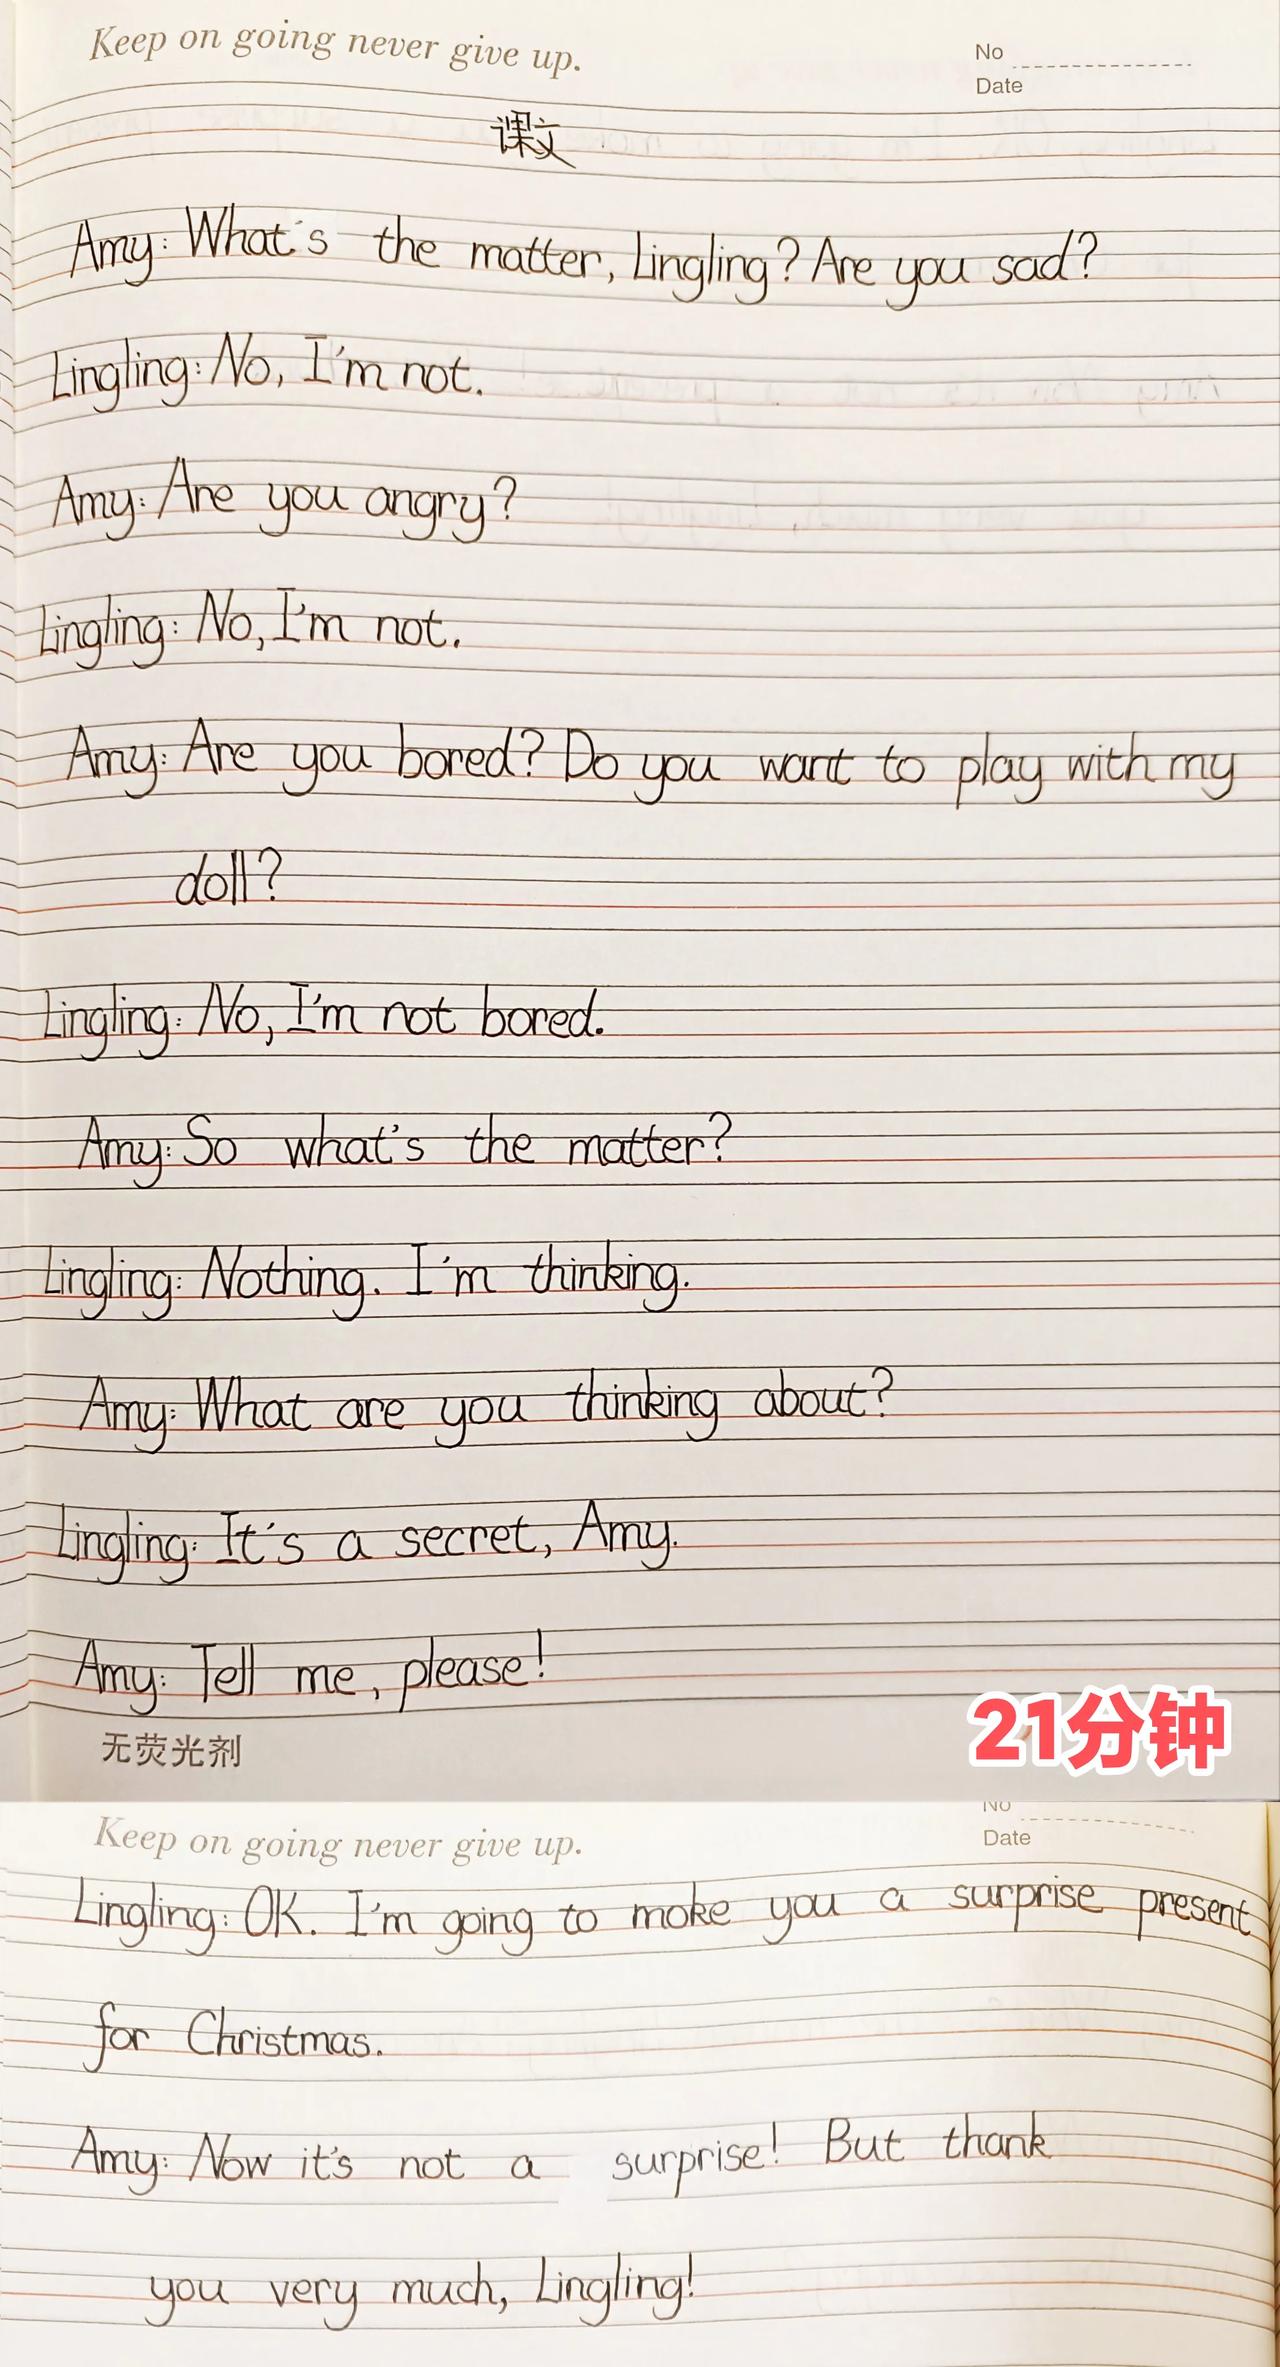 Keep on going never give up.
No
Date
课文
Amy: What's the matter, Lingling? Are you sad?
Lingling: No, I'm not.
Amy: Are you angry?
Lingling: No, I'm not.
Amy: Are you bored? Do you want to play with my
doll?
Lingling: No, I'm not bored.
Amy: So what's the matter?
Lingling: Nothing. I'm thinking.
Amy: What are you thinking about?
Lingling: It's a secret, Amy.
Amy: Tell me, please!
21分钟
无荧光剂
Keep on going never give up.
No
Date
Lingling: OK. I'm going to make you a surprise present
for Christmas.
Amy: Now it's not a surprise! But thank
you very much, Lingling!